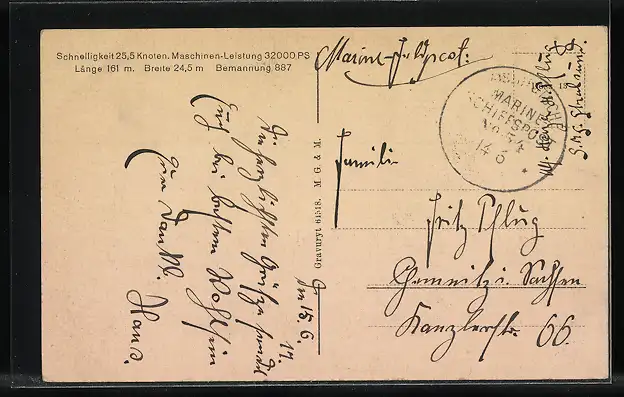 Schnelligkeit 25,5 Knoten. Maschinen-Leistung 32000 PS
Länge 161 m. Breite 24,5 m Bemannung 887
Marine-Feldpost.
MARINE-
SCHIFFSPOST
No 54
14 6
S.M.S. Stralsund.
Gravuryt 61518. M. G. & M.
Im 15.6.
17.
Die herzlichsten Grüße sendet
Euch bei bestem Wohlsein
Euer dankb.
Hans.
Familie
Fritz Pflug
Chemnitz i. Sachsen
Kanzlerstr. 66.